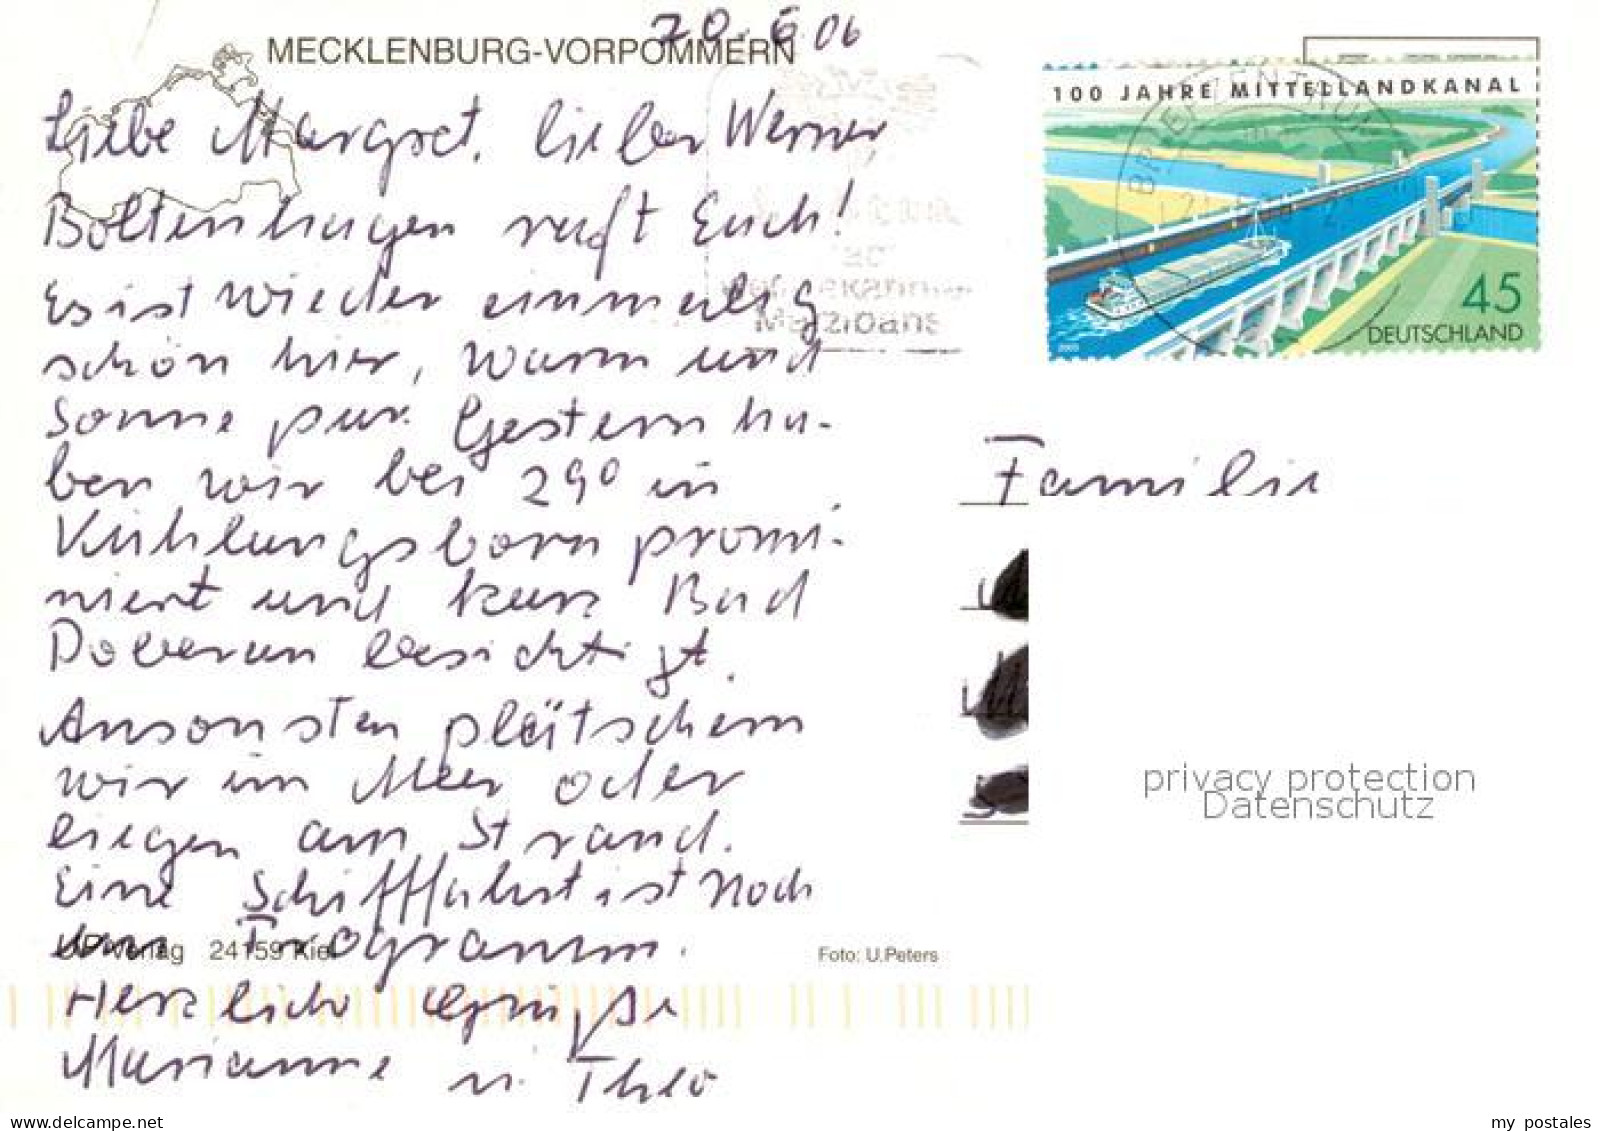 20.6.06
MECKLENBURG-VORPOMMERN
Liebe Margret, lieber Werner,
Boltenhagen ruft Euch!
Es ist wieder einmalig
schön hier, warm und
Sonne pur. Gestern ha-
ben wir bei 29° in
Kühlungsborn promi-
niert und kurz Bad
Doberan besichtigt.
Ansonsten plätschern
wir im Meer oder
liegen am Strand.
Eine Schifffahrt ist noch
im Programm.
Herzliche Grüße
Marianne u. Theo
UP-Verlag 24159 Kiel
Foto: U.Peters
100 JAHRE MITTELLANDKANAL
45
DEUTSCHLAND
2005
BRIEFZENTRUM
Familie
privacy protection
Datenschutz
my postales
www.delcampe.net